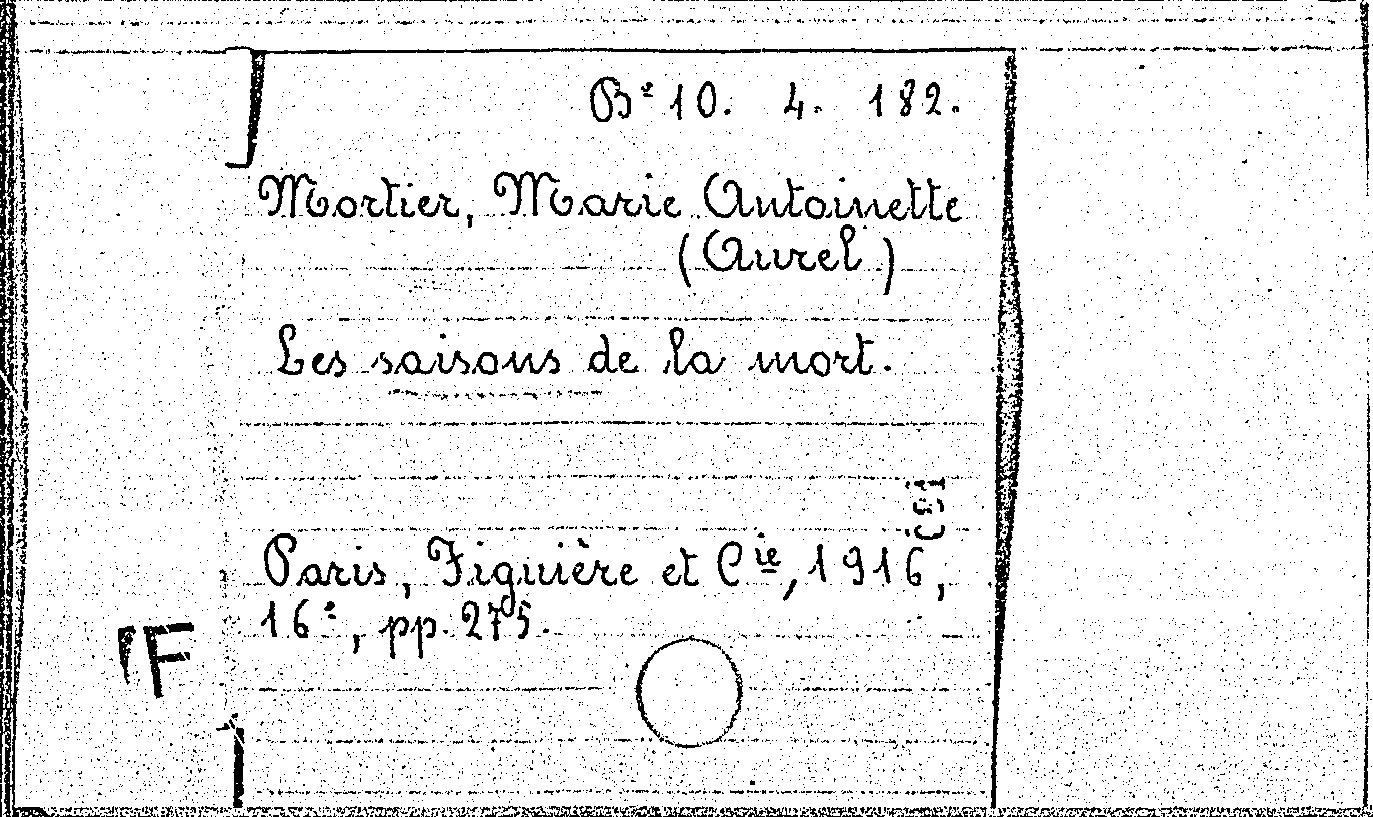 Bº 10. 4. 182.
Mortier, Marie Antoinette
(Aurel)
Les saisons de la mort.
Paris, Figuière et Cie, 1916,
16º, pp. 275.
F